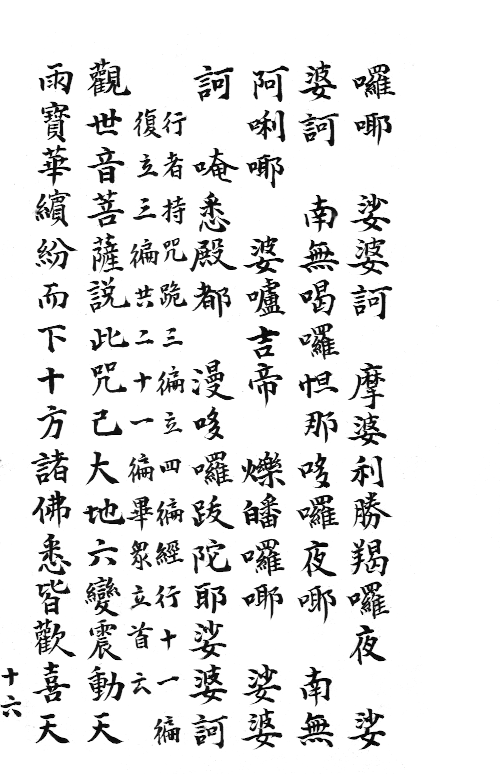 囉耶　娑婆訶　摩婆利勝羯囉夜　娑
婆訶　南無喝囉怛那哆囉夜耶　南無
阿唎耶　婆嚧吉帝　爍皤囉耶　娑婆
訶　唵悉殿都　漫哆囉跋陀耶娑婆訶
行者持咒跪三徧立四徧經行十一徧
復立三徧共二十一徧畢衆立首云
觀世音菩薩說此咒己大地六變震動天
雨寶華繽紛而下十方諸佛悉皆歡喜天
十六